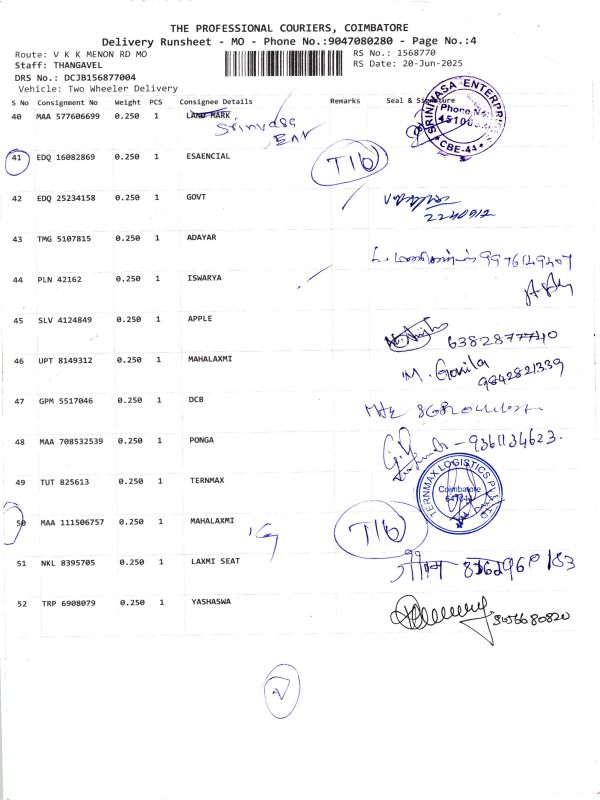 THE PROFESSIONAL COURIERS, COIMBATORE
Delivery Runsheet - MO - Phone No.:9047080280 - Page No.:4
Route: V K K MENON RD MO RS No.: 1568770
Staff: THANGAVEL RS Date: 20-Jun-2025
DRS No.: DCJB156877004
Vehicle: Two Wheeler Delivery
S No Consignment No Weight PCS Consignee Details Remarks Seal & Signature
40 MAA 577606699 0.250 1 LAND MARK
Srinvasa
Ent
SRINIVASA ENTERPRISE
Phone No
CBE-44
41 EDQ 16082869 0.250 1 ESAENCIAL T10
42 EDQ 25234158 0.250 1 GOVT
43 TMG 5107815 0.250 1 ADAYAR
44 PLN 42162 0.250 1 ISWARYA
45 SLV 4124849 0.250 1 APPLE
6382877740
46 UPT 8149312 0.250 1 MAHALAXMI M. Gomila
9842821339
47 GPM 5517046 0.250 1 DCB
48 MAA 708532539 0.250 1 PONGA 9361134623.
49 TUT 825613 0.250 1 TERNMAX
TERNMAX LOGISTICS PVT LTD
Coimbatore
50 MAA 111506757 0.250 1 MAHALAXMI T10
51 NKL 8395705 0.250 1 LAXMI SEAT
52 TRP 6908079 0.250 1 YASHASWA